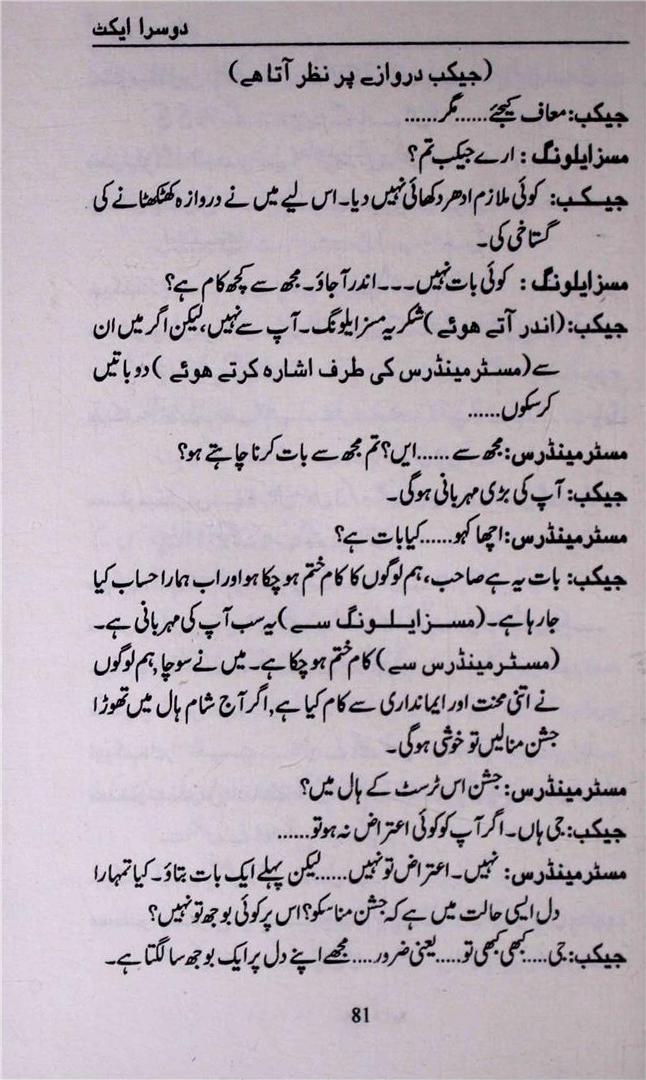 دوسرا ایکٹ
(جیکب دروازے پر نظر آتا ھے)
جیکب: معاف کیجئے......مگر......
مسز ایلونگ: ارے جیکب تم؟
جیکب: کوئی ملازم ادھر دکھائی نہیں دیا۔ اس لیے میں نے دروازہ کھٹکھٹانے کی
گستاخی کی۔
مسز ایلونگ: کوئی بات نہیں۔۔۔اندر آجاؤ۔ مجھ سے کچھ کام ہے؟
جیکب: (اندر آتے ھوئے) شکریہ مسز ایلونگ۔ آپ سے نہیں، لیکن اگر میں ان
سے (مسٹر مینڈرس کی طرف اشارہ کرتے ھوئے) دو باتیں
کرسکوں......
مسٹر مینڈرس: مجھ سے......ایں؟ تم مجھ سے بات کرنا چاہتے ہو؟
جیکب: آپ کی بڑی مہربانی ہوگی۔
مسٹر مینڈرس: اچھا کہو......کیا بات ہے؟
جیکب: بات یہ ہے صاحب، ہم لوگوں کا کام ختم ہوچکا ہے اور اب ہمارا حساب کیا
جارہا ہے۔ (مسز ایلونگ سے) یہ سب آپ کی مہربانی ہے۔
(مسٹر مینڈرس سے) کام ختم ہوچکا ہے۔ میں نے سوچا, ہم لوگوں
نے اتنی محنت اور ایمانداری سے کام کیا ہے, اگر آج شام ہال میں تھوڑا
جشن منالیں تو خوشی ہوگی۔
مسٹر مینڈرس: جشن اس ٹرسٹ کے ہال میں؟
جیکب: جی ہاں۔ اگر آپ کو کوئی اعتراض نہ ہو تو......
مسٹر مینڈرس: نہیں۔ اعتراض تو نہیں......لیکن پہلے ایک بات بتاؤ۔ کیا تمہارا
دل ایسی حالت میں ہے کہ جشن مناسکو؟ اس پر کوئی بوجھ تو نہیں؟
جیکب: جی....کبھی کبھی تو.....یعنی ضرور....مجھے اپنے دل پر ایک بوجھ سا لگتا ہے۔
81